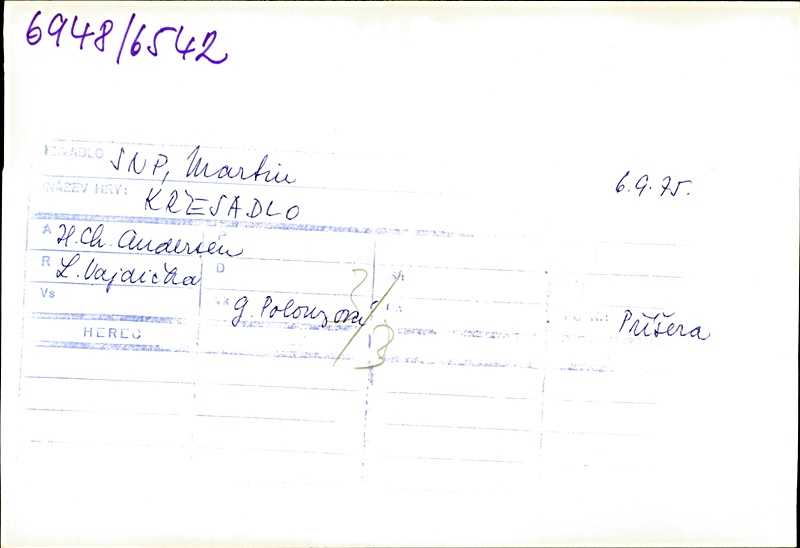 6948/6542
DIVADLO SNP, Martin
6.9.75.
NÁZEV HRY: KŘESADLO
A H. Ch. Andersen
P
R L. Vajdička
D
Vs
Vk G. Polonzová
2/3
Příšera
HEREC